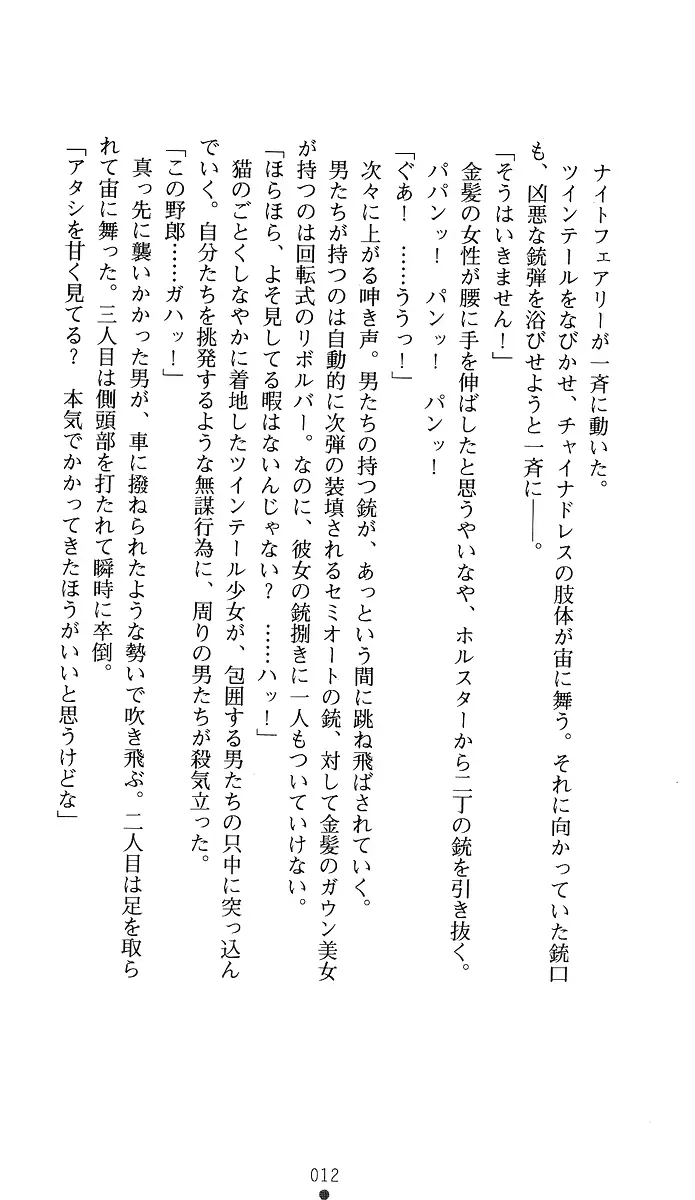 ナイトフェアリーが一斉に動いた。
ツインテールをなびかせ、チャイナドレスの肢体が宙に舞う。それに向かっていた銃口
も、凶悪な銃弾を浴びせようと一斉に――。
「そうはいきません！」
金髪の女性が腰に手を伸ばしたと思うやいなや、ホルスターから二丁の銃を引き抜く。
パパンッ！　パンッ！　パンッ！
「ぐぁ！　……ううっ！」
次々に上がる呻き声。男たちの持つ銃が、あっという間に跳ね飛ばされていく。
男たちが持つのは自動的に次弾の装填されるセミオートの銃、対して金髪のガウン美女
が持つのは回転式のリボルバー。なのに、彼女の銃捌きに一人もついていけない。
「ほらほら、よそ見してる暇はないんじゃない？　……ハッ！」
猫のごとくしなやかに着地したツインテール少女が、包囲する男たちの只中に突っ込ん
でいく。自分たちを挑発するような無謀行為に、周りの男たちが殺気立った。
「この野郎……ガハッ！」
真っ先に襲いかかった男が、車に撥ねられたような勢いで吹き飛ぶ。二人目は足を取ら
れて宙に舞った。三人目は側頭部を打たれて瞬時に卒倒。
「アタシを甘く見てる？　本気でかかってきたほうがいいと思うけどな」
012